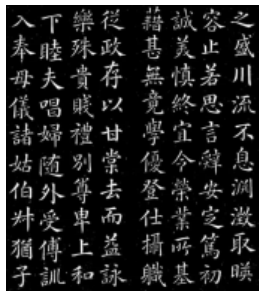 之盛川流不息淵澂取暎
容止若思言辭安定篤初
誠美慎終宜令榮業所基
藉甚無竟學優登仕攝軄
從政存以甘棠去而益詠
樂殊貴賤禮別尊卑上和
下睦夫唱婦随外受傅訓
入奉母儀諸姑伯叔猶子